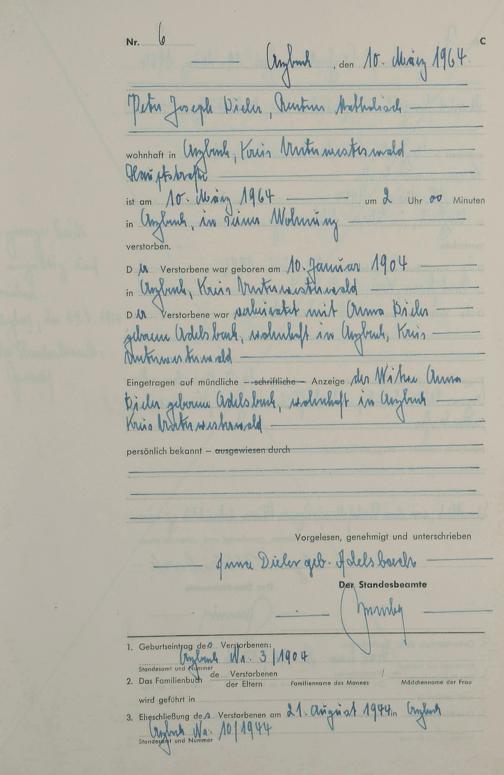 Nr. 6 C
Arzbach, den 10. März 1964
Peter Joseph Dieler, Rentner katholisch
wohnhaft in Arzbach, Kreis Unterwesterwald
Hauptstraße
ist am 10. März 1964 um 2 Uhr 00 Minuten
in Arzbach, in seiner Wohnung
verstorben.
D er Verstorbene war geboren am 10. Januar 1904
in Arzbach, Kreis Unterwesterwald
D er Verstorbene war verheiratet mit Anna Dieler
geborene Adelsbach, wohnhaft in Arzbach, Kreis
Unterwesterwald
Eingetragen auf mündliche – schriftliche – Anzeige der Witwe Anna
Dieler geborene Adelsbach, wohnhaft in Arzbach
Kreis Unterwesterwald
persönlich bekannt – ausgewiesen durch
Vorgelesen, genehmigt und unterschrieben
Anna Dieler geb. Adelsbach
Der Standesbeamte
1. Geburtseintrag des Verstorbenen:
Arzbach Nr. 3/1904
Standesamt und Nummer
2. Das Familienbuch de Verstorbenen
der Eltern Familienname des Mannes Mädchenname der Frau
wird geführt in
3. Eheschließung des Verstorbenen am 21. August 1944 in Arzbach
Arzbach Nr. 10/1944
Standesamt und Nummer